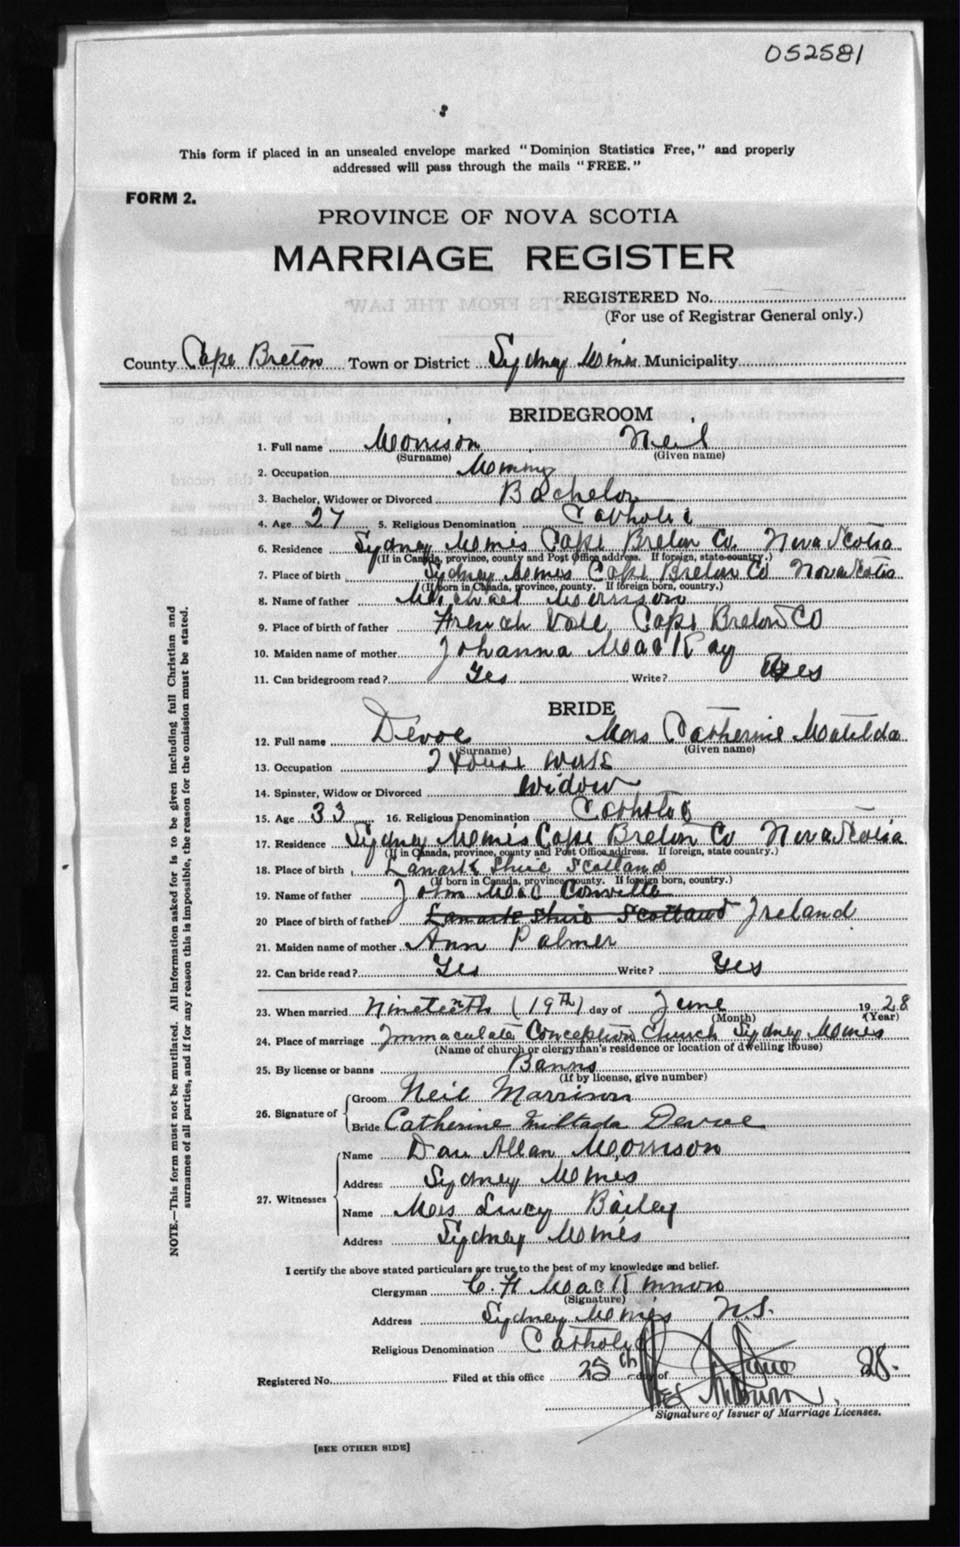 052581
This form if placed in an unsealed envelope marked "Dominion Statistics Free," and properly
addressed will pass through the mails "FREE."
FORM 2.
PROVINCE OF NOVA SCOTIA
MARRIAGE REGISTER
REGISTERED No.
(For use of Registrar General only.)
County Cape Breton Town or District Sydney Mines Municipality
BRIDEGROOM
1. Full name Morrison Neil
(Surname) (Given name)
2. Occupation
3. Bachelor, Widower or Divorced Bachelor
4. Age 27 5. Religious Denomination Catholic
6. Residence Sydney Mines Cape Breton Co Nova Scotia
(If in Canada, province, county and Post Office address. If foreign, state country.)
7. Place of birth Sydney Mines Cape Breton Co Nova Scotia
(If born in Canada, province, county. If foreign born, country.)
8. Name of father Michael Morrison
9. Place of birth of father French Vale Cape Breton CO
10. Maiden name of mother Johanna MacKay
11. Can bridegroom read? Yes Write? Yes
BRIDE
12. Full name Devoe Mrs Catherine Matilda
(Surname) (Given name)
13. Occupation House Work
14. Spinster, Widow or Divorced Widow
15. Age 33 16. Religious Denomination Catholic
17. Residence Sydney Mines Cape Breton Co Nova Scotia
(If in Canada, province, county and Post Office address. If foreign, state country.)
18. Place of birth Lanark Shire Scotland
(If born in Canada, province, county. If foreign born, country.)
19. Name of father John Mac Conville
20 Place of birth of father Lanark Shire Scotland Ireland
21. Maiden name of mother Ann Palmer
22. Can bride read? Yes Write? Yes
23. When married Nineteenth (19th) day of June 1928
(Month) (Year)
24. Place of marriage Immaculate Conception Church Sydney Mines
(Name of church or clergyman's residence or location of dwelling house)
25. By license or banns Banns
(If by license, give number)
26. Signature of
Groom Neil Morrison
Bride Catherine Devoe
27. Witnesses
Name Dan Allan Morrison
Address Sydney Mines
Name Mrs Lucy Bailey
Address Sydney Mines
I certify the above stated particulars are true to the best of my knowledge and belief.
Clergyman C. F. MacKinnon
(Signature)
Address Sydney Mines N.S.
Religious Denomination Catholic
Registered No. Filed at this office 25th day of June 28.
Signature of Issuer of Marriage Licenses.
[SEE OTHER SIDE]
NOTE.—This form must not be mutilated. All information asked for is to be given including full Christian and
surnames of all parties, and if for any reason this is impossible, the reason for the omission must be stated.